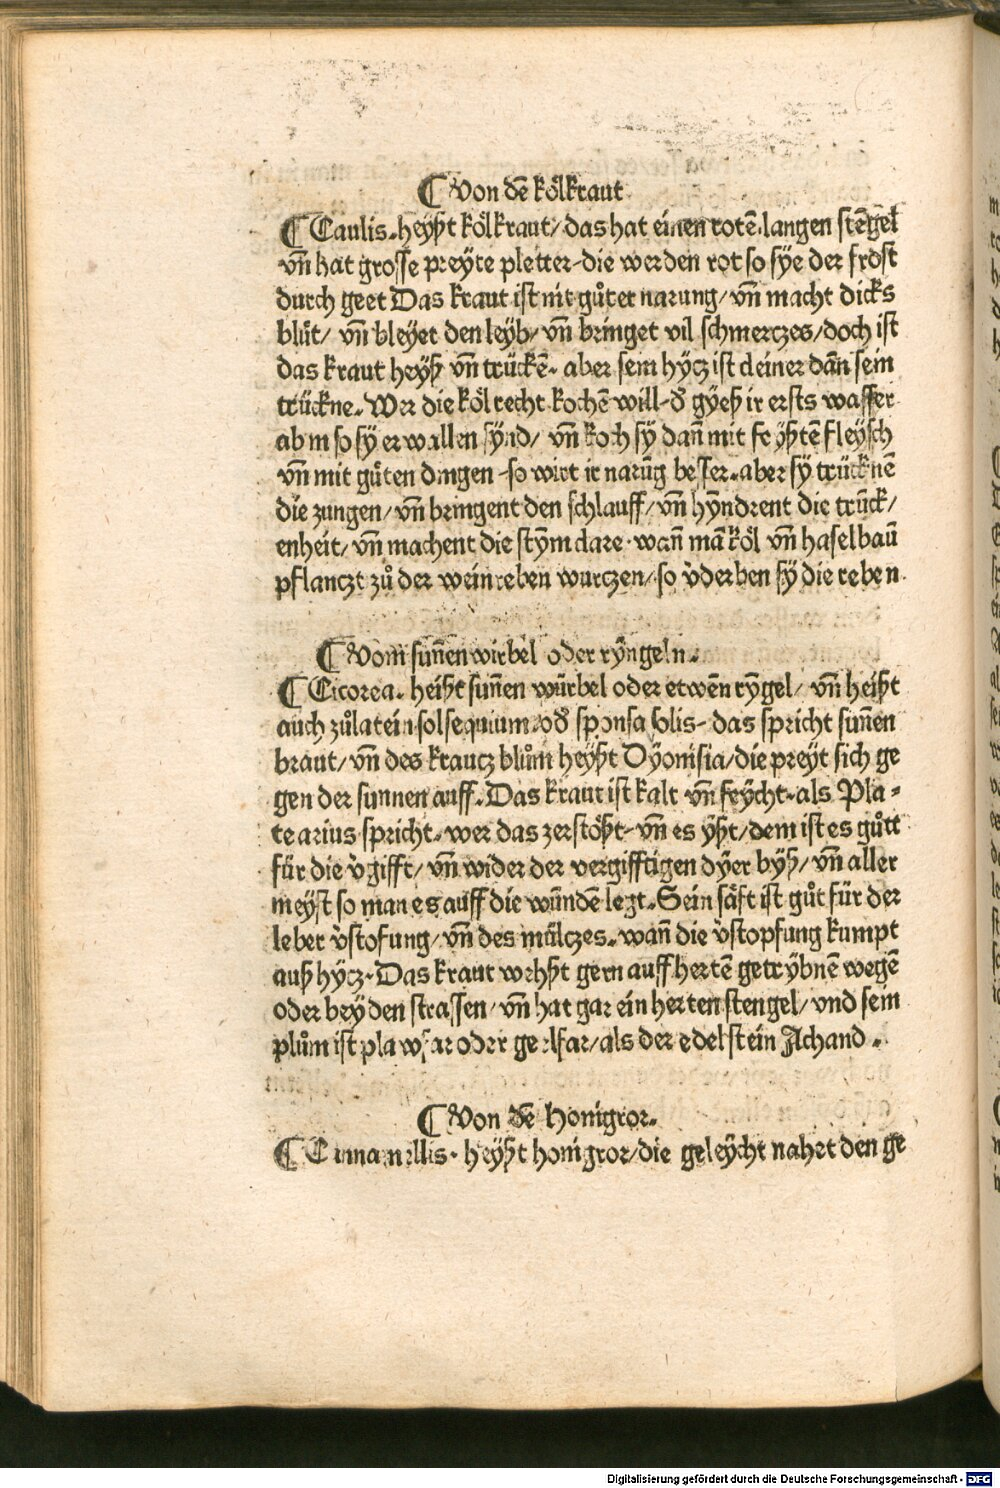 ⸿ Von dē kölkraut
⸿ Caulis. heyßt kölkraut/ das hat einen rotē langen stēgel
vn̄ hat grosse preyte pletter. die werden rot so sÿe der frost
durch geet Das kraut ist nit gůter narung/ vn̄ macht dicks
blůt/ vn̄ bleyet den leyb/ vn̄ bringet vil schmerczes/ doch ist
das kraut heyß vn̄ trückē. aber sein hÿcz ist cleiner dan̄ sein
trückne. Wer die köl recht kochē will. d̄ gÿeß ir ersts wasser
ab in so sÿ erwallen sÿnd/ vn̄ koch sÿ dan̄ mit feÿßtē fleÿsch
vn̄ mit gůten dingen. so wirt ir narūg besser. aber sÿ trücknē
die zungen/ vn̄ bringent den schlauff/ vn̄ hÿndrent die trūck/
enheit/ vn̄ machent die stÿm clare. wan̄ mā köl vn̄ haselbaū
pflanczt zů der weinreben wurczen/ so v̓derben sÿ die reben.
⸿ Vom sun̄en wirbel oder rÿngeln.
⸿ Cicorea. heißt sun̄en würbel oder etwēn rÿgel/ vn̄ heißt
auch zů latein solsequium. od̄ sponsa solis. das spricht sun̄en
braut/ vn̄ des krautz blům heyßt Dÿonisia/ die preyt sich ge
gen der sunnen auff. Das kraut ist kalt vn̄ feÿcht. als Pla-
tearius spricht. wer das zerstößt. vn̄ es ÿßt/ dem ist es gůtt
für die v̓gifft/ vn̄ wider der vergifftigen dÿer byß/ vn̄ aller
meyst so man es auff die wūndē legt. Sein säft ist gůt für der
leber v̓stofung/ vn̄ des mülczes. wan̄ die v̓stopfung kumpt
auß hÿcz. Das kraut wehßt gern auff hertē getrÿbnē wegē
oder beÿ den strassen/ vn̄ hat gar ein herten stengel/ vnd sein
plům ist plawfar oder gelfar/ als der edelstein Achand.
⸿ Von dē honigror.
⸿ heÿßt honigror/ die geleÿcht nahet den ge
Digitalisierung gefördert durch die Deutsche Forschungsgemeinschaft - DFG